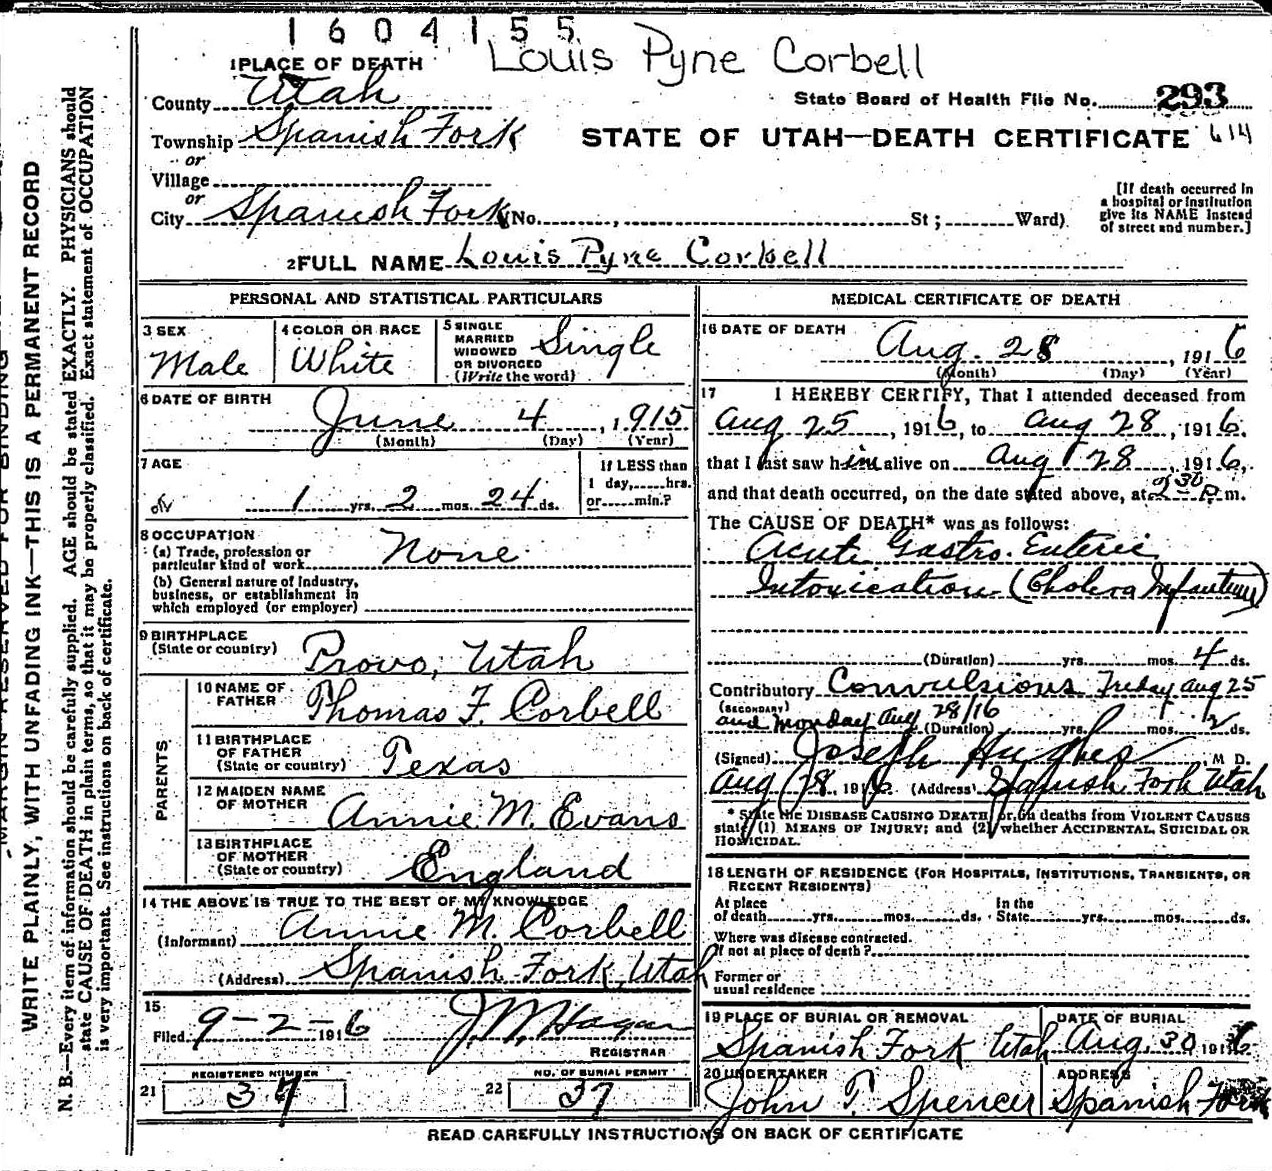 1604155
Louis Pyne Corbell
1 PLACE OF DEATH
County Utah
State Board of Health File No. 293
Township Spanish Fork
STATE OF UTAH—DEATH CERTIFICATE 614
or
Village
or
City Spanish Fork (No. , St ; Ward)
[If death occurred in
a hospital or institution
give its NAME instead
of street and number.]
2 FULL NAME Louis Pyne Corbell
PERSONAL AND STATISTICAL PARTICULARS
3 SEX
Male
4 COLOR OR RACE
White
5 SINGLE
MARRIED
WIDOWED
OR DIVORCED
(Write the word)
Single
6 DATE OF BIRTH
June 4, 1915
(Month) (Day) (Year)
7 AGE
1 yrs. 2 mos. 24 ds.
If LESS than
1 day, hrs.
or min.?
8 OCCUPATION
(a) Trade, profession or
particular kind of work None
(b) General nature of Industry,
business, or establishment in
which employed (or employer)
9 BIRTHPLACE
(State or country) Provo, Utah
PARENTS
10 NAME OF
FATHER Thomas F. Corbell
11 BIRTHPLACE
OF FATHER
(State or country) Texas
12 MAIDEN NAME
OF MOTHER Annie M. Evans
13 BIRTHPLACE
OF MOTHER
(State or country) England
14 THE ABOVE IS TRUE TO THE BEST OF MY KNOWLEDGE
(Informant) Annie M. Corbell
(Address) Spanish Fork, Utah
15
Filed 9-2-1916 J. W. Hagan
REGISTRAR
21 REGISTERED NUMBER
37
22 NO. OF BURIAL PERMIT
37
MEDICAL CERTIFICATE OF DEATH
16 DATE OF DEATH
Aug. 28, 1916
(Month) (Day) (Year)
17 I HEREBY CERTIFY, That I attended deceased from
Aug 25, 1916, to Aug 28, 1916,
that I last saw him alive on Aug 28, 1916,
and that death occurred, on the date stated above, at 2 30 P. m.
The CAUSE OF DEATH* was as follows:
Acute Gastro. Enteric
Intoxication (Cholera Infantum)
(Duration) yrs. mos. 4 ds.
Contributory Convulsions Friday Aug 25
(SECONDARY)
and Monday Aug 28/16 (Duration) yrs. mos. ds.
(Signed) Joseph Hughes, M D.
Aug 28, 1916 (Address) Spanish Fork Utah
* State the DISEASE CAUSING DEATH, or, in deaths from VIOLENT CAUSES
state (1) MEANS OF INJURY; and (2) whether ACCIDENTAL, SUICIDAL OR
HOMICIDAL.
18 LENGTH OF RESIDENCE (FOR HOSPITALS, INSTITUTIONS, TRANSIENTS, OR
RECENT RESIDENTS)
At place
of death yrs. mos. ds.
In the
State yrs. mos. ds.
Where was disease contracted.
If not at place of death ?
Former or
usual residence
19 PLACE OF BURIAL OR REMOVAL
Spanish Fork Utah
DATE OF BURIAL
Aug. 30 1916
20 UNDERTAKER
John T. Spencer
ADDRESS
Spanish Fork
READ CAREFULLY INSTRUCTIONS ON BACK OF CERTIFICATE
MARGIN RESERVED FOR BINDING
WRITE PLAINLY, WITH UNFADING INK—THIS IS A PERMANENT RECORD
N. B.—Every item of information should be carefully supplied. AGE should be stated EXACTLY. PHYSICIANS should
state CAUSE OF DEATH in plain terms, so that it may be properly classified. Exact statement of OCCUPATION
is very important. See instructions on back of certificate.